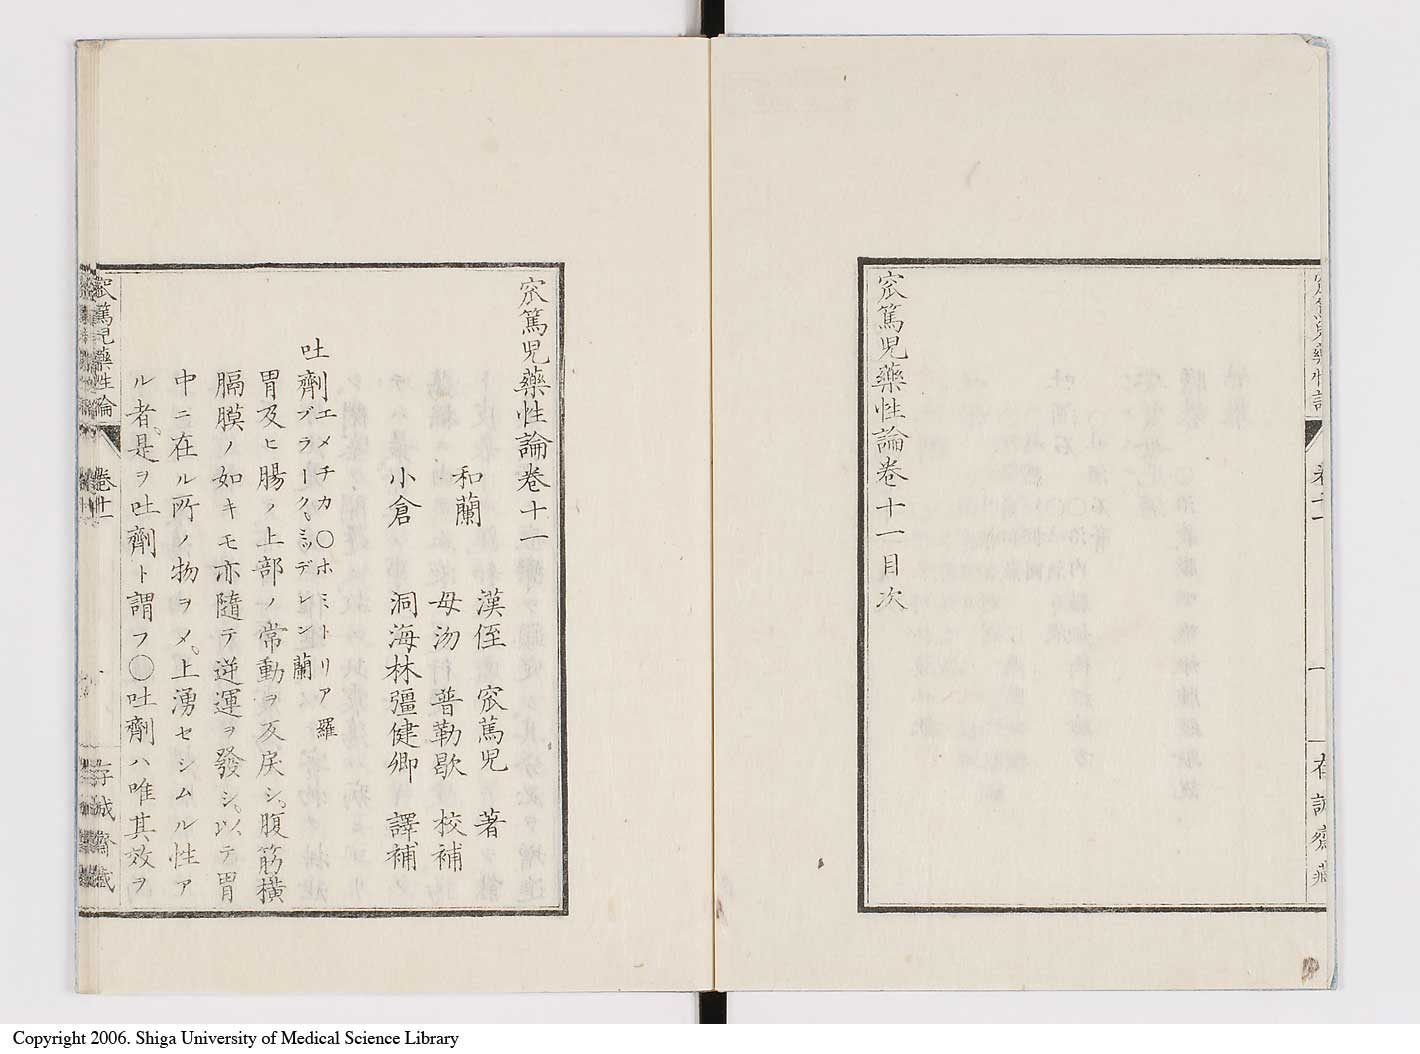 窊篤児藥性論
卷十一
一
有誠齋藏
窊篤児藥性論卷十一目次
窊篤児藥性論卷十一
和蘭 漢侄 窊篤児 著
毋汤 普勒歇 校補
小倉 洞海林彊健卿 譯補
吐劑エメチカ〇ホミトリア羅
ブラーク、ミッデレン蘭
胃及ヒ腸ノ上部ノ常動ヲ反戻シ、腹筋横
膈膜ノ如キモ亦隨テ逆運ヲ發シ、以テ胃
中ニ在ル所ノ物ヲメ、上湧セシムル性ア
ル者、是ヲ吐劑ト謂フ〇吐劑ハ唯其效ヲ
窊篤児藥性論
卷十一
Copyright 2006. Shiga University of Medical Science Library